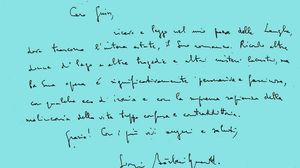 Caro Guin,
ricevo e leggo nel mio paese delle Langhe,
dove trascorro l'intera estate, il Suo romanzo. Ricordo altre
donne di lago e altre tragedie e altri misteri lacustri, ma
la Sua opera è significativamente pensierosa e
con qualche eco di ironia e con la suprema sapienza della
malinconia della vita troppo confusa e contraddittoria.
Grazie! Con i più vivi auguri e saluti,